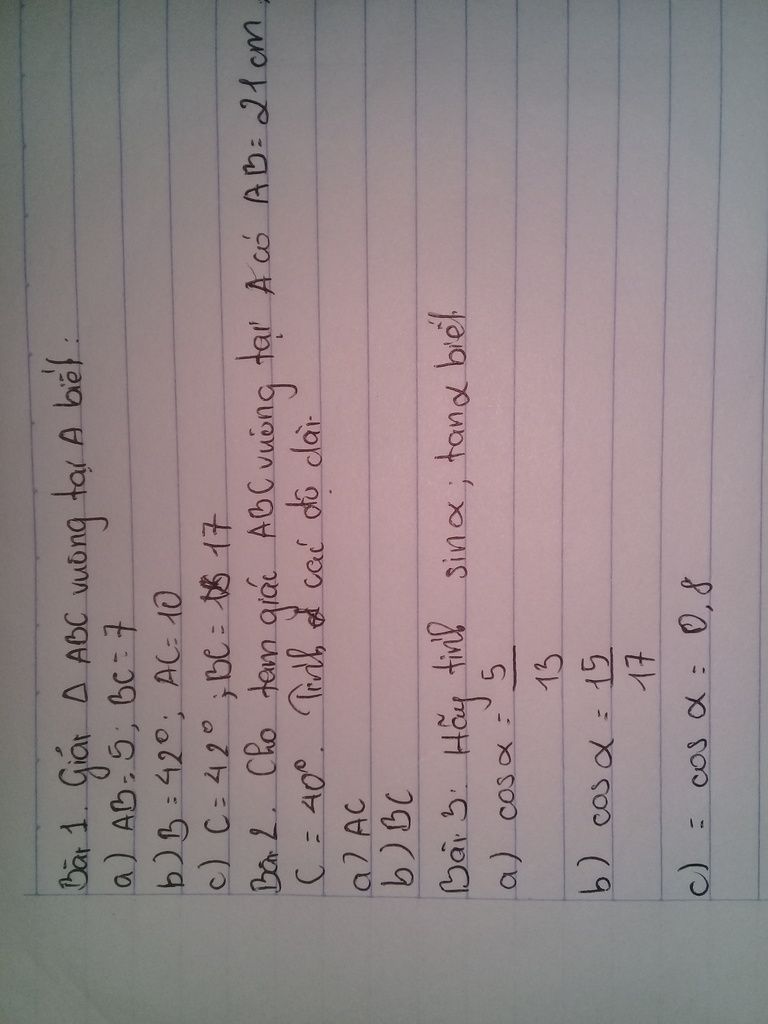 Bài 1. Giải Δ ABC vuông tại A biết:
a) AB = 5; BC = 7
b) B = 42°; AC = 10
c) C = 42°; BC = 17
Bài 2. Cho tam giác ABC vuông tại A có AB = 21cm,
C = 40°. Tính các độ dài.
a) AC
b) BC
Bài 3. Hãy tính sin α; tan α biết.
a) cos α = 5/13
b) cos α = 15/17
c) = cos α = 0,8